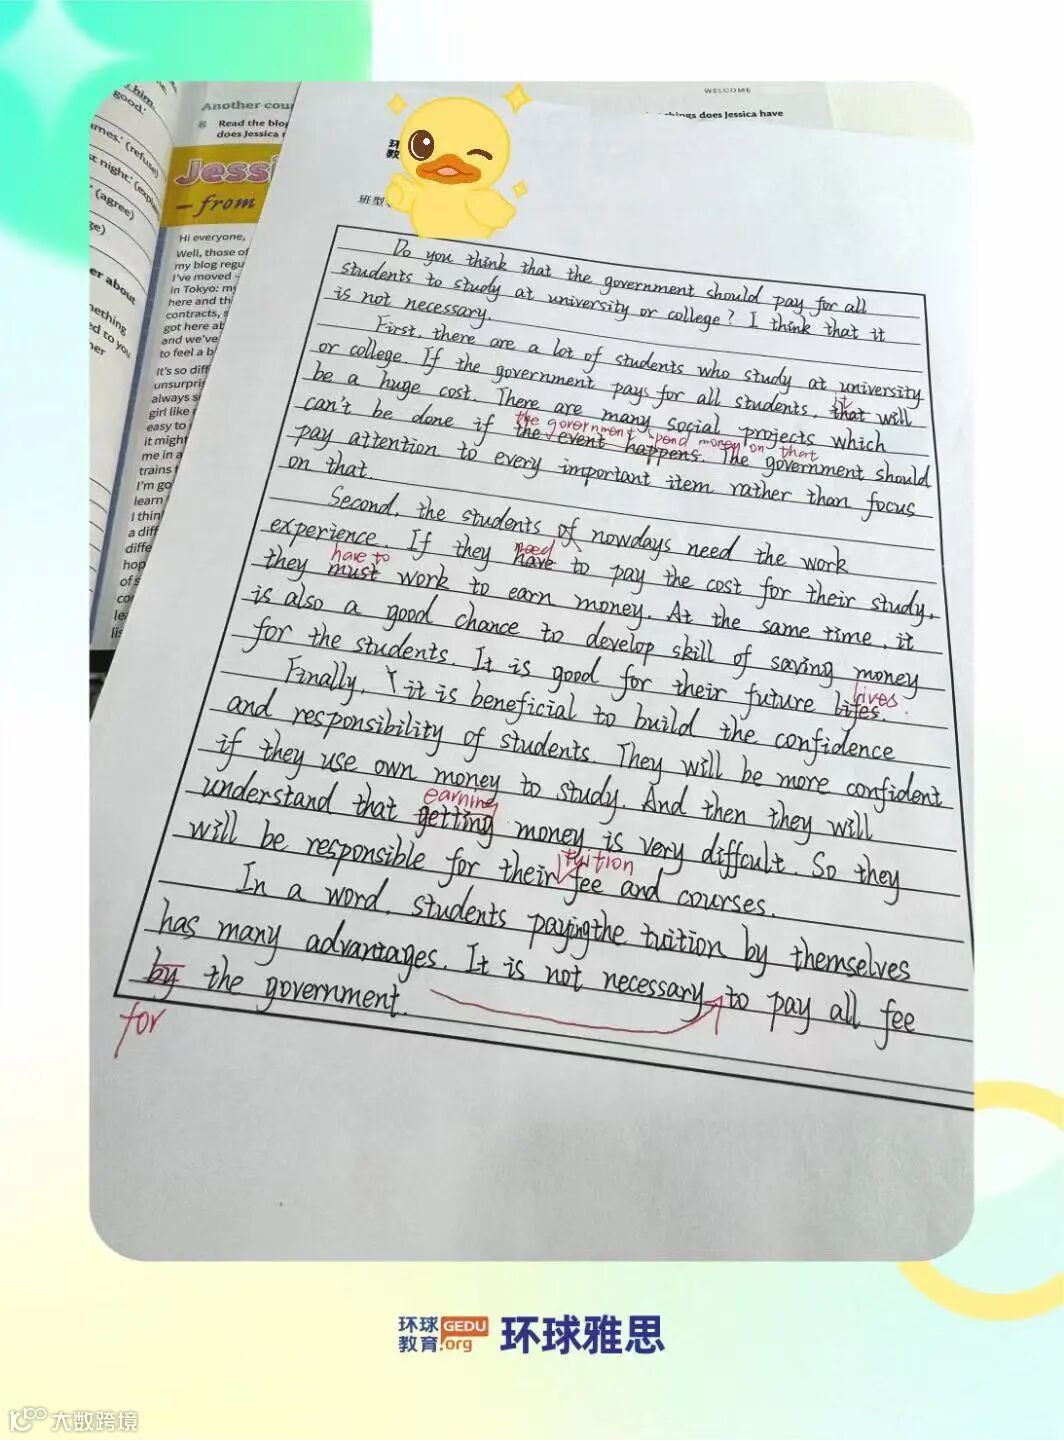 WELCOME
Another cou
8 Read the blog
does Jessica
things does Jessica have
him.
good.'
mes.' (refuse)
t night.' (expla
(agree)
ge)
er about
mething
ed to you
her
Jessi
– from
Hi everyone,
Well, those of
my blog regu
I've moved
in Tokyo: my
here and th
contracts, s
got here ab
and we've
to feel a b
It's so diff
unsurpris
always s
girl like
easy to
it might
me in a
trains
I'm go
learn
I thin
a diff
diffe
hop
of s
co
lea
lis
班型
Do you think that the government should pay for all
students to study at university or college? I think that it
is not necessary.
First, there are a lot of students who study at university
or college. If the government pays for all students, that will
it
be a huge cost. There are many social projects which
the government spend money on that
can't be done if the event happens. The government should
pay attention to every important item rather than focus
on that.
Second, the students of nowdays need the work
experience. If they have to pay the cost for their study,
need
have to
they must work to earn money. At the same time, it
is also a good chance to develop skill of saving money
for the students. It is good for their future lifes.
lives
Finally, it is beneficial to build the confidence
and responsibility of students. They will be more confident
if they use own money to study. And then they will
earning
understand that getting money is very diffcult. So they
tuition
will be responsible for their fee and courses.
In a word, students paying the tuition by themselves
has many advantages. It is not necessary to pay all fee
by the government.
for
环球教育 GEDU.org 环球雅思
大数跨境